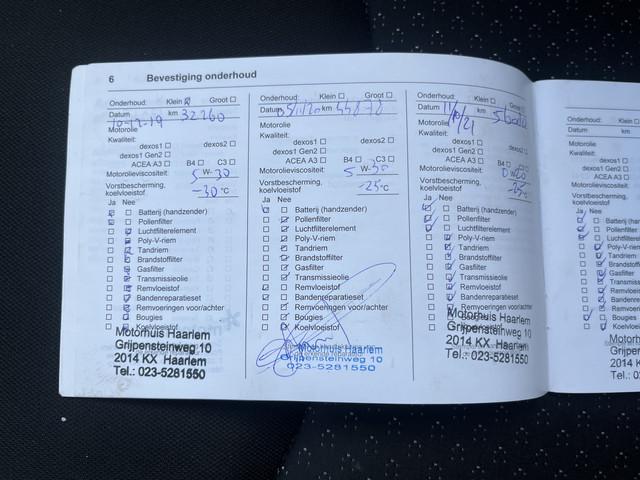 6 Bevestiging onderhoud
Onderhoud: Klein ☒ Groot ☐
Datum 10-12-19 km 32260
Motorolie
Kwaliteit:
dexos1 ☐ dexos2 ☐
dexos1 Gen2 ☐
ACEA A3 ☐ B4 ☐ C3 ☐
Motorolieviscositeit: 5 W-30
Vorstbescherming,
koelvloeistof -30 °C
Ja Nee
Batterij (handzender)
Pollenfilter
Luchtfilterelement
Poly-V-riem
Tandriem
Brandstoffilter
Gasfilter
Transmissieolie
Remvloeistof
Bandenreparatieset
Remvoeringen voor/achter
Bougies
Koelvloeistof
Motorhuis Haarlem
Grijpensteinweg 10
2014 KX Haarlem
Tel.: 023-5281550
Onderhoud: Klein ☐ Groot ☐
Datum km
Motorolie
Kwaliteit:
dexos1 ☐ dexos2 ☐
dexos1 Gen2 ☐
ACEA A3 ☐ B4 ☐ C3 ☐
Motorolieviscositeit: 5 W-30
Vorstbescherming,
koelvloeistof -25 °C
Ja Nee
Batterij (handzender)
Pollenfilter
Luchtfilterelement
Poly-V-riem
Tandriem
Brandstoffilter
Gasfilter
Transmissieolie
Remvloeistof
Bandenreparatieset
Remvoeringen voor/achter
Bougies
Koelvloeistof
Motorhuis Haarlem
Grijpensteinweg 10
023-5281550
Onderhoud: Klein ☐ Groot ☐
Datum 11/10/21 km
Motorolie
Kwaliteit:
dexos1 ☐ dexos2
dexos1 Gen2 ☐
ACEA A3 ☐ B4 ☐
Motorolieviscositeit:
Vorstbescherming,
koelvloeistof -25 °C
Ja Nee
Batterij (handzender)
Pollenfilter
Luchtfilterelement
Poly-V-riem
Tandriem
Brandstoffilter
Gasfilter
Transmissieolie
Remvloeistof
Bandenreparatieset
Remvoeringen voor/achter
Bougies
Koelvloeistof
Motorhuis Haarlem
Grijpensteinweg 10
2014 KX Haarlem
Tel.: 023-5281550
Onderhoud:
Datum
Motorolie
Kwaliteit:
dexos1 ☐
dexos1 Gen2 ☐
ACEA A3 ☐
Motorolieviscositeit:
Vorstbescherming,
koelvloeistof
Ja Nee
Batterij (h
Pollenfilte
Luchtfilter
Poly-V-ri
Tandriem
Brandstof
Gasfilter
Transmis
Remvloe
Bandenr
Remvoe
Bougies
Koelvlo
Motorh
Grijpe
2014
Tel.: 0